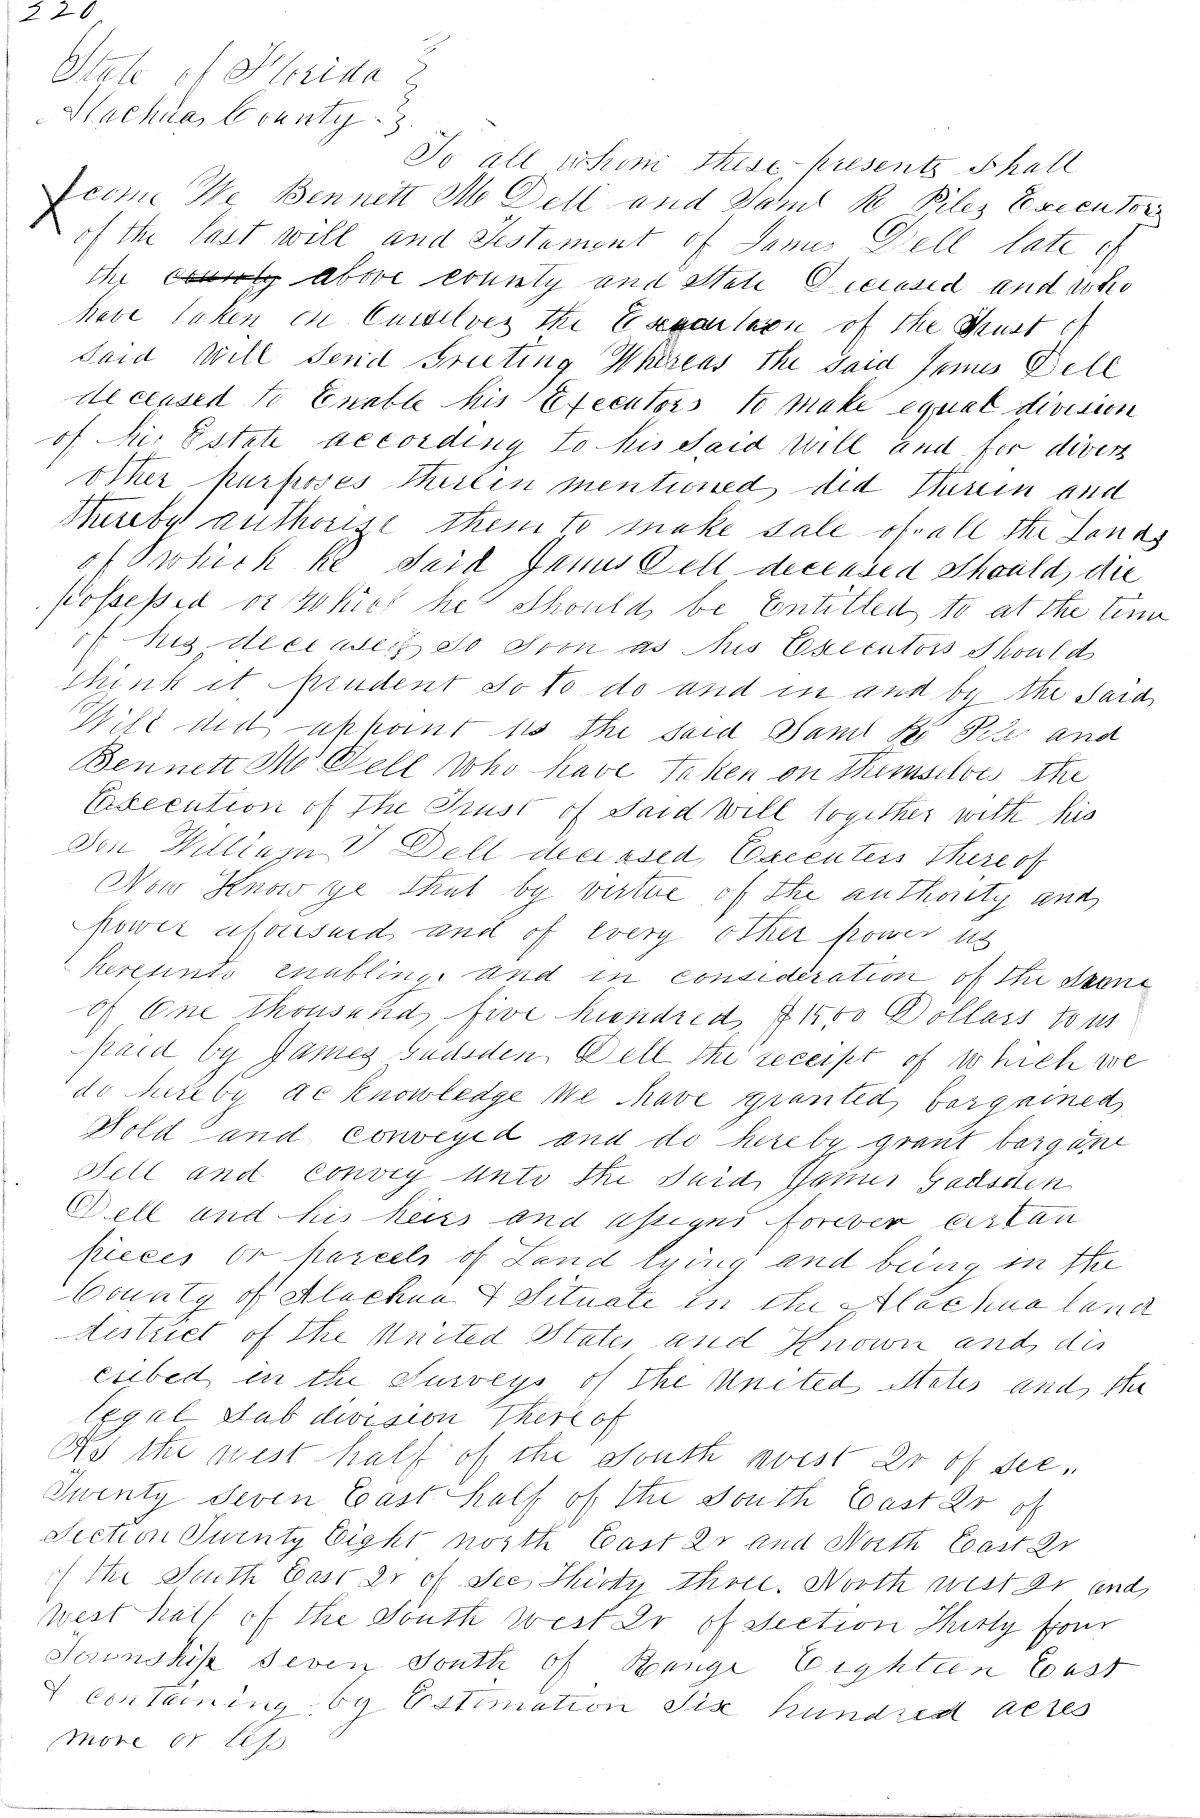 220
State of Florida
Alachua County
To all whom these presents shall
come We Bennett M Dell and Saml R Piles Executors
of the last will and Testament of James Dell late of
the county above county and State Deceased and who
have taken on Ourselves the Execution of the Trust of
said Will send Greeting Whereas the said James Dell
deceased to Enable his Executors to make equal division
of his Estate according to his said will and for divers
other purposes therein mentioned did therein and
thereby authorize them to make sale of all the Lands
of which he said James Dell deceased should die
possessed or which he should be Entitled to at the time
of his decease so soon as his Executors should
think it prudent so to do and in and by the said
Will did appoint us the said Saml R Piles and
Bennett M Dell who have taken on themselves the
Execution of the Trust of said will together with his
Son William J Dell deceased Executers thereof
Now Know ye that by virtue of the authority and
power aforesaid and of every other power us
hereunto enabling and in consideration of the
of One thousand five hundred $1500 Dollars to us
paid by James Gadsden Dell the receipt of which we
do hereby acknowledge We have granted bargained
Sold and conveyed and do hereby grant bargane
sell and convey unto the said James Gadsden
Dell and his heirs and assigns forever certan
pieces or parcels of Land lying and being in the
County of Alachua & Situate in the Alachua land
district of the United States and Known and dis
cribed in the Surveys of the United States and the
legal Sub division thereof
As the west half of the South west Qr of sec..
Twenty seven East half of the South East Qr of
Section Twenty Eight north East Qr and North East Qr
of the South East Qr of Sec Thirty three. North west Qr and
West half of the South West Qr of section Thirty four
Township seven South of Range Eighteen East
& containing by Estimation Six hundred acres
more or less